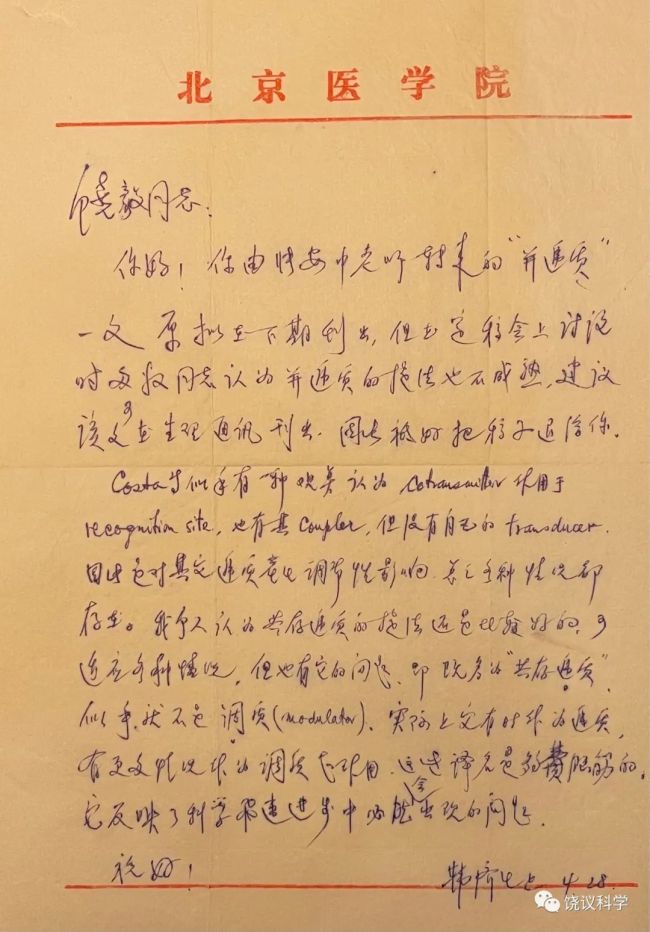 北京医学院
饶毅同志:
你好! 你由陕安中老师转来的"并递质"
一文 原拟在下期刊出, 但在定稿会上讨论
时多数同志认为并递质的提法也不成熟, 建议
该文可在生理通讯刊出. 因此 把稿子退给你.
Costa等似乎有一种 认为 cotransmitter 作用于
recognition site, 也有其 coupler, 但没有自己的 transducer.
因此它对其它递质产生调节性影响. 各种情况都
存在。我个人认为共存递质的提法还是比较好的, 可
适应各种情况, 但也有它的问题, 即既名为"共存递质",
似乎就不是调质(modulator). 实际上它有时作为递质,
有更多情况作为调质起作用. 这些译名是够费脑筋的,
它反映了科学飞速进步中必然会出现的问题.
祝好!
韩济生上 4.28.
饶议科学